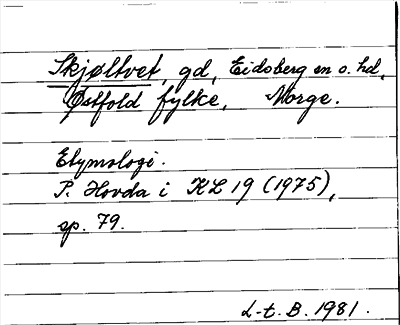 Skjøltvet, gd, Eidsberg en o. hd,
Østfold fylke, Norge.
Etymologi.
P. Hovda i KL 19 (1975),
sp. 79.
L-t. B. 1981.